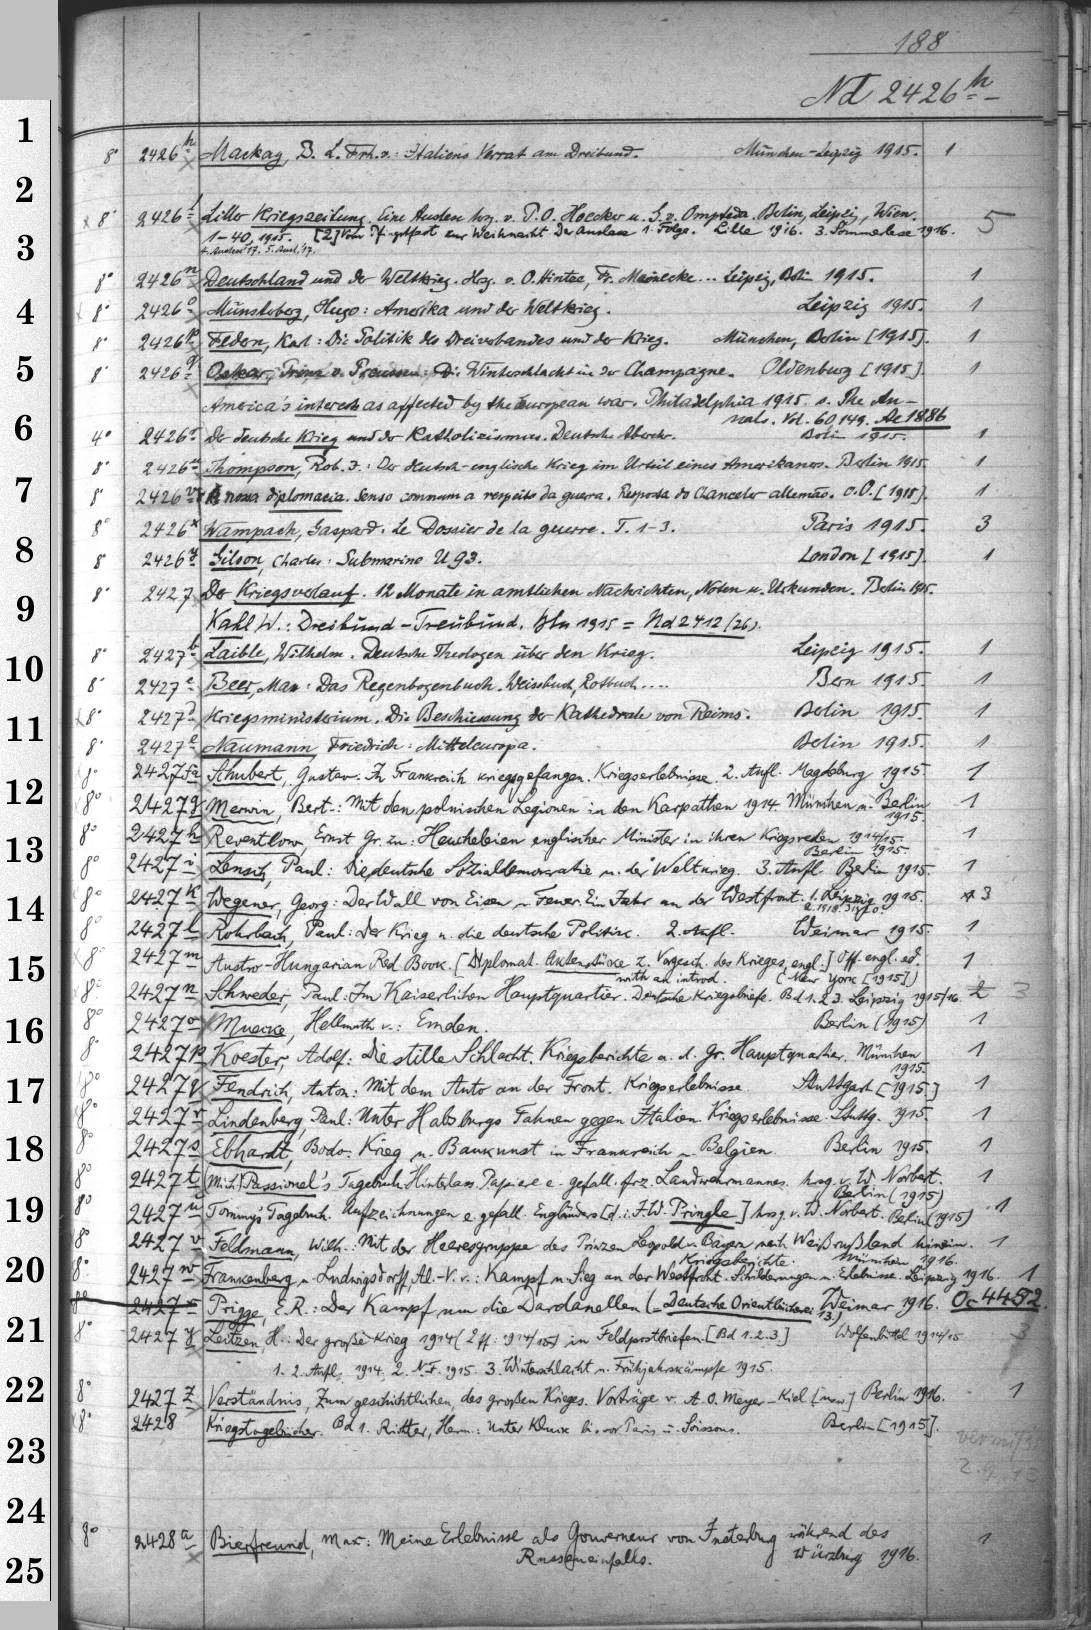 188
Nd 2426 h
1
8° 2426 h Mackay, B. L. Frh. v.: Italiens Verrat am Dreibund. München-Leipzig 1915. 1
2
x 8° 2426 l Liller Kriegszeitung. Eine Auslese hrsg. v. P. O. Hoecker u. G. v. Ompteda. Berlin, Leipzig, Wien. 5
1-40, 1915. [2] Vom zur Weihnacht der Auslese 1. Folge. Lille 1916. 3. Sommerlese 1916.
3
4. Auslese '17. 5. Ausl. '17.
8° 2426 n Deutschland und der Weltkrieg. Hrsg. v. O. Hintze, Fr. Meinecke... Leipzig, Berlin 1915. 1
4
8° 2426 o Münsterberg, Hugo: Amerika und der Weltkrieg. Leipzig 1915. 1
8° 2426 p Federn, Karl: Die Politik des Dreiverbandes und der Krieg. München, Berlin [1915]. 1
5
8° 2426 q Oskar, Prinz v. Preussen: Die Winterschlacht in der Champagne. Oldenburg [1915] 1
America's interests as affected by the European war. Philadelphia 1915. s. The An-
nals. Vol. 60, 149. Ae 1886
6
4° 2426 Der deutsche Krieg und der Katholizismus. Deutsche Abwehr. Berlin 1915. 1
8° 2426 u Thompson, Rob. J.: Der deutsch-englische Krieg im Urteil eines Amerikaners. Berlin 1915. 1
7
8° 2426 v A nova diplomacia. Senso commum a respeito da guerra. Resposta do Chanceler allemão. o. O. [1915]. 1
8° 2426 x Wampach, Gaspard. Le Dossier de la guerre. T. 1-3. Paris 1915. 3
8
8° 2426 y Gilson, Charles: Submarine U 93. London [1915]. 1
8° 2427 Der Kriegsverlauf. 12 Monate in amtlichen Nachrichten, Noten u. Urkunden. Berlin 1915.
9
Kahl W.: Dreibund-Treubund. Bln 1915 = Nd 2412 (26).
10
8° 2427 b Laible, Wilhelm. Deutsche Theologen über den Krieg. Leipzig 1915. 1
8° 2427 c Beer, Max: Das Regenbogenbuch. Weissbuch, Rotbuch.... Bern 1915. 1
11
x 8° 2427 d Kriegsministerium. Die Beschiessung der Kathedrale von Reims. Berlin 1915. 1
8° 2427 e Naumann, Friedrich: Mitteleuropa. Berlin 1915. 1
8° 2427 fa Schubert, Gustav: In Frankreich kriegsgefangen. Kriegserlebnisse. 2. Aufl. Magdeburg 1915. 1
12
8° 2427 g Merwin, Bert.: Mit den polnischen Legionen in den Karpathen 1914. München u. Berlin 1
1915.
8° 2427 h Reventlow, Ernst Gr. zu: Heucheleien englischer Minister in ihren Kriegsreden 1914/15. 1
Berlin 1915.
13
8° 2427 i Lensch, Paul: Die deutsche Sozialdemocratie u. der Weltkrieg. 3. Aufl. Berlin 1915. 1
8° 2427 k Wegener, Georg: Der Wall von Eisen u. Feuer. Ein Jahr an der Westfront. 1. Leipzig 1915. 3
14
8° 2427 l Rohrbach, Paul: Der Krieg u. die deutsche Politik. 2. Aufl. Weimar 1915. 1
8° 2427 m Austro-Hungarian Red Book. [Diplomat. Aktenstücke z. Vorgesch. des Krieges, engl.] Off. engl. ed. 1
with an introd. (New York [1915])
15
8° 2427 n Schweder, Paul: Im Kaiserlichen Hauptquartier. Deutsche Kriegsbriefe. Bd 1. 2. 3. Leipzig 1915/16. 2 3
16
8° 2427 o Muecke, Hellmuth v.: Emden. Berlin (1915) 1
8° 2427 p Koester, Adolf: Die stille Schlacht. Kriegsberichte a. d. Gr. Hauptquartier. München 1
1915.
17
8° 2427 q Fendrich, Anton: Mit dem Auto an der Front. Kriegserlebnisse. Stuttgart [1915] 1
8° 2427 r Lindenberg, Paul: Unter Habsburgs Fahnen gegen Italien. Kriegserlebnisse. Stuttg. 1915. 1
18
8° 2427 s Ebhardt, Bodo: Krieg u. Baukunst in Frankreich u. Belgien. Berlin 1915. 1
8° 2427 t (Mich.) Passional's Tagebuch. Hinterlass. Papiere e. gefall. frz. Landwehrmannes. hrsg. v. W. Norbert. 1
Berlin (1915)
19
8° 2427 u Tommy's Tagebuch. Aufzeichnungen e. gefall. Engländers [d. i. F. W. Pringle] hrsg. v. W. Norbert. Berlin (1915) 1
8° 2427 v Feldmann, Wilh.: Mit der Heeresgruppe des Prinzen Leopold v. Bayern nach Weißrußland hinein. 1
Kriegsberichte. München 1916.
20
8° 2427 w Frankenberg u. Ludwigsdorff, Al. V. v.: Kampf u. Sieg an der Westfront. Schilderungen u. Erlebnisse. Leipzig 1916. 1
8° 2427 x Prigge, E. R.: Der Kampf um die Dardanellen (= Deutsche Orientbücherei 13.) Weimar 1916. Oc 4452.
21
8° 2427 y Leitzen, H.: Der große Krieg 1914 (2 ff: 1914/15) in Feldpostbriefen. [Bd 1. 2. 3.] Wolfenbüttel 1914/15 3
1. 2. Aufl. 1914. 2. N. F. 1915. 3. Winterschlacht u. Frühjahrskämpfe 1915.
22
8° 2427 z Verständnis, Zum geschichtlichen, des großen Krieges. Vorträge v. A. O. Meyer-Kiel [usw.] Berlin 1916. 1
8° 2428 Kriegstagebücher. Bd 1. Ritter, Herm.: Unter Kluck bis vor Paris u. Soissons. Berlin [1915].
23
24
8° 2428 a Bierfreund, Max: Meine Erlebnisse als Gouverneur von Insterburg während des 1
Russeneinfalls. Würzburg 1916.
25